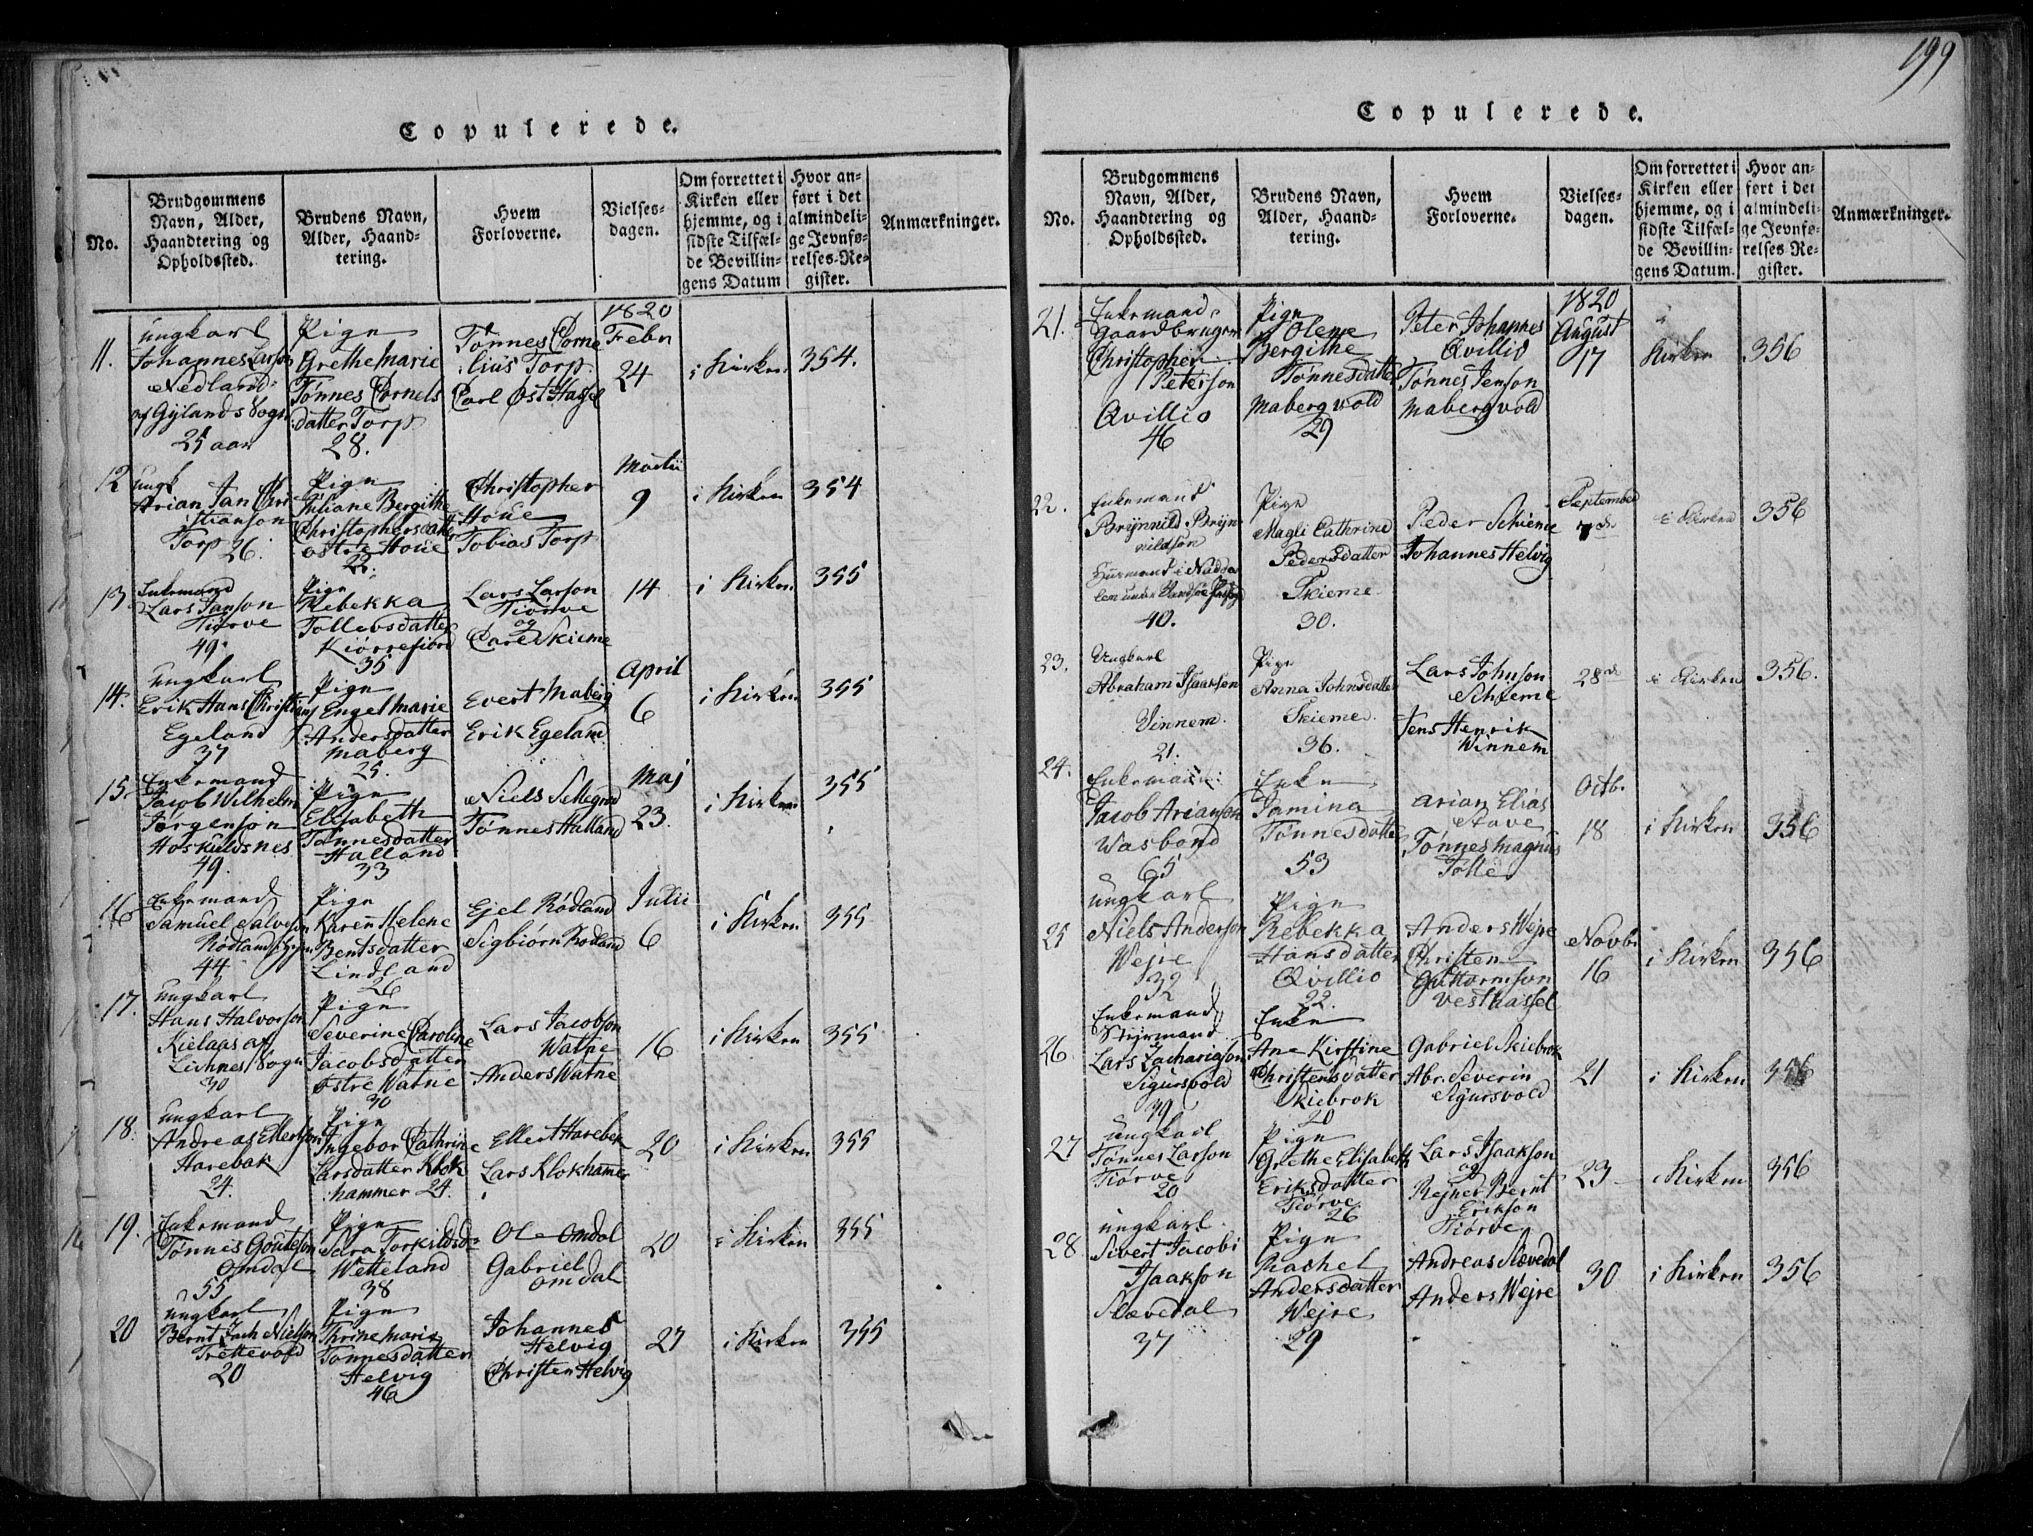 Copulerede.
No.
Brudgommens
Navn, Alder,
Haandtering og
Opholdssted.
Brudens Navn,
Alder, Haand-
tering.
Hvem
Forloverne.
Vielses-
dagen.
Om forrettet i
Kirken eller
hjemme, og i
sidste Tilfæl-
de Bevillin-
gens Datum
Hvor an-
ført i det
almindeli-
ge Jevnfø-
relses-Re-
gister.
Anmærkninger.
1820
11.
ungkarl
Johannes Larson
Nedland
af Gylands Sogn
25 aar
Pige
Grethe Marie
Tønnes Cornels
datter Torp
28.
Tönnes Corne
lius Torp
Carl Ost Hassel
Febr
24
i Kirken
354.
12
ungk
Arian Jan Chri
stianson
Torp
26.
Pige
Juliane Bergithe
Christophersdatter
ostre Houe
22.
Christopher
Houe
Tobias Torp
Martii
9
i Kirken
354
13.
Enkemand
Lars Janson
Tiörve
49.
Pige
Rebekka
Tollevsdatter
Kiörrefiord
35
Lars Larson
Tiörve
og
Carl Skieme
14
i Kirken
355
14.
ungkarl
Erik Hans Christians
Egeland
37
Pige
Engel Marie
Andersdatter
Maberg
25.
Evert Maberg
Erik Egeland
April
6
i Kirken
355
15.
Enkemand
Jacob Wilhelm
Jörgenson
Hoskuldsnes
49.
Pige
Elisabeth
Tönnesdatter
Halland
33
Niels Sellegrod
Tönnes Halland
Maj
23.
i Kirken
355
16
Enkemand
Samuel Salveson
Rödland
44
Pige
Karen Helene
Bentsdatter
Lindland
26
Ejel Rödland
Sigbiörn Rodland
Julii
6
i Kirken
355
17.
ungkarl
Hans Halvorson
Kielaas af
Sogn
30
Pige
Severine Caroline
Jacobsdatter
östre Watne
30
Lars Jacobson
Watne
Anders Watne
16
i Kirken
355
18.
ungkarl
Andreas Ellertson
Harebak
24.
Pige
Ingebor Cathrine
Larsdatter Klok
hammer 24.
Ellert Harebek
Lars Klokhamer
20
i Kirken
355
19.
Enkemand
Tönnis Gouteson
Omdal
55
Pige
Sara Torkildsd=
Wetteland
38
Ole Omdal
Gabriel
Omdal
20
i Kirken
355
20
ungkarl
Bernt Zach Nielson
Trettevold
20
Pige
Thrine Marie
Tönnesdatter
Helvig
46
Johannes
Helvig
Christen Helvig
27
i Kirken
355
199
Copulerede.
No.
Brudgommens
Navn, Alder,
Haandtering og
Opholdssted.
Brudens Navn,
Alder, Haand-
tering.
Hvem
Forloverne.
Vielses-
dagen.
Om forrettet i
Kirken eller
hjemme, og i
sidste Tilfæl-
de Bevillin-
gens Datum.
Hvor an-
ført i det
almindeli-
ge Jevnfø-
relses-Re-
gister.
Anmærkninger.
1820
21.
Enkemand
Gaardbruger
Christopher
Peterson
Qvillio
46
Pige
Olene
Bergithe
Tönnesdatter
Mabergvold
29
Peter Johannes
Qvillio
Tønnes Jenson
Mabergvold
August
17
Kirken
356
22.
Enkemand
Brynnild Bryn
nildson
Huusmand i
40.
Pige
Magli Cathrine
Pedersdatter
Skieme
30.
Peder Skieme
Johannes Helvig
September
7de
i Kirken
356
23.
Ungkarl
Abraham Isaakson
Vinnem.
21.
Pige
Anna Johnsdatter
Skieme.
36.
Lars Johnson
Schieme
Jens Henrik
Winnem
28de
i Kirken
356.
24.
Enkemand
Jacob Arianson
Wasbond
65
Enke
Jamina
Tönnesdatter
53
Arian Elias
Stave
Tønnes Magnus
Totte
Octb.
18
i Kirken
356
25
ungkarl
Niels Anderson
Wejre
32
Pige
Rebekka
Hansdatter
Qvillio
22.
Anders Wejre
Christen
Guttormson
Vesthassel
Novbr
16
i Kirken
356
26
Enkemand
Styrmand
Lars Zachariason
Sigursvold
39
Enke
Ane Kirstine
Christensdatter
Skiebrok
20
Gabriel Skiebrok
Abr. Severin
Sigursvold
21
i Kirken
356
27
ungkarl
Tønnes Larson
Tiörve
20
Pige
Grethe Elisabeth
Eriksdatter
Tiörve
26
Lars Isaakson
og
Rejner Bernt
Erikson
Tiörve
23
i Kirken
356
28
ungkarl
Sivert Jacobi
Isaakson
Slævedal
37
Pige
Rachel
Andersdatter
Wejre
29
Andreas Slævedal
Anders Wejre
30
i Kirken
356